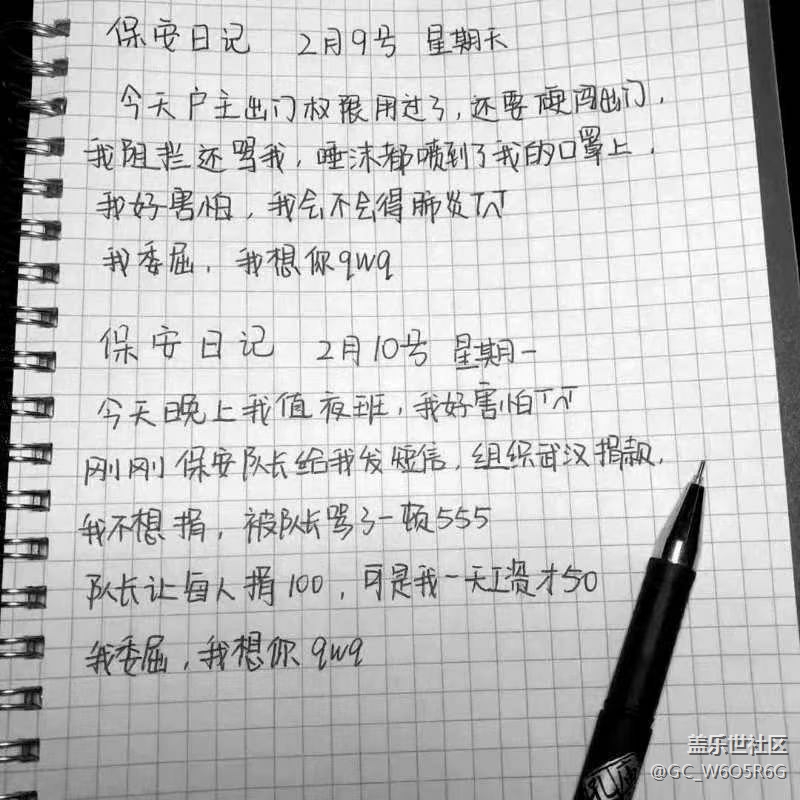 保安日记 2月9号 星期天
今天户主出门权限用过了,还要硬闯出门,
我阻拦还骂我,唾沫都喷到了我的口罩上,
我好害怕,我会不会得肺炎TAT
我委屈,我想你qwq
保安日记 2月10号 星期一
今天晚上我值夜班,我好害怕TAT
刚刚保安队长给我发短信,组织武汉捐款,
我不想捐,被队长骂了一顿555
队长让每人捐100,可是我一天工资才50
我委屈,我想你qwq
盖乐世社区
@GC_W6O5R6G